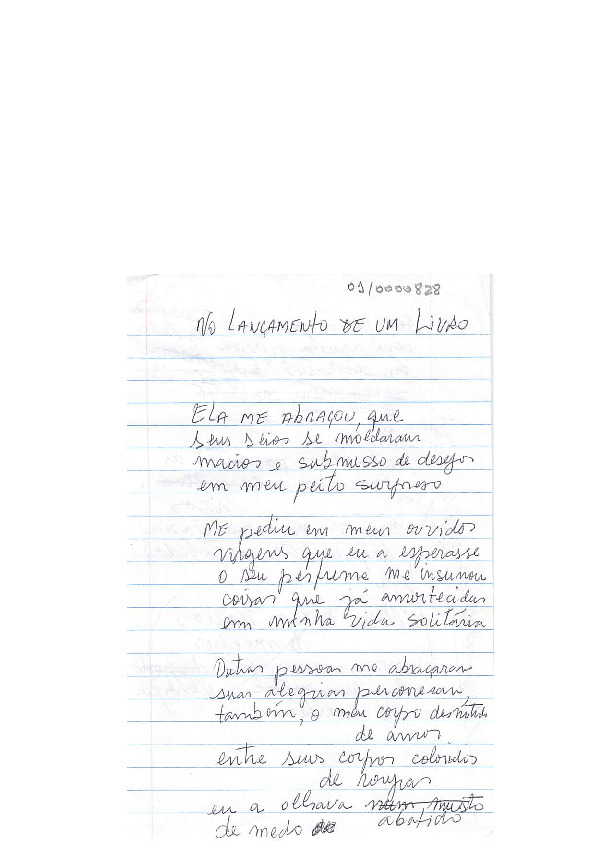 01/0000828
NO LANÇAMENTO DE UM LIVRO
ELA ME ABRAÇOU, que
seus seios se moldaram
macios e submisso de desejos
em meu peito surpreso
ME pediu em meus ouvidos
virgens que eu a esperasse
o seu perfume me insunou
coisas que já amortecidas
em minha vida solitária
Outras pessoas me abraçaram
suas alegrias percorreram,
também, o meu corpo
de amor
entre seus corpos coloridos
de roupas
eu a olhava num misto
abatido
de medo